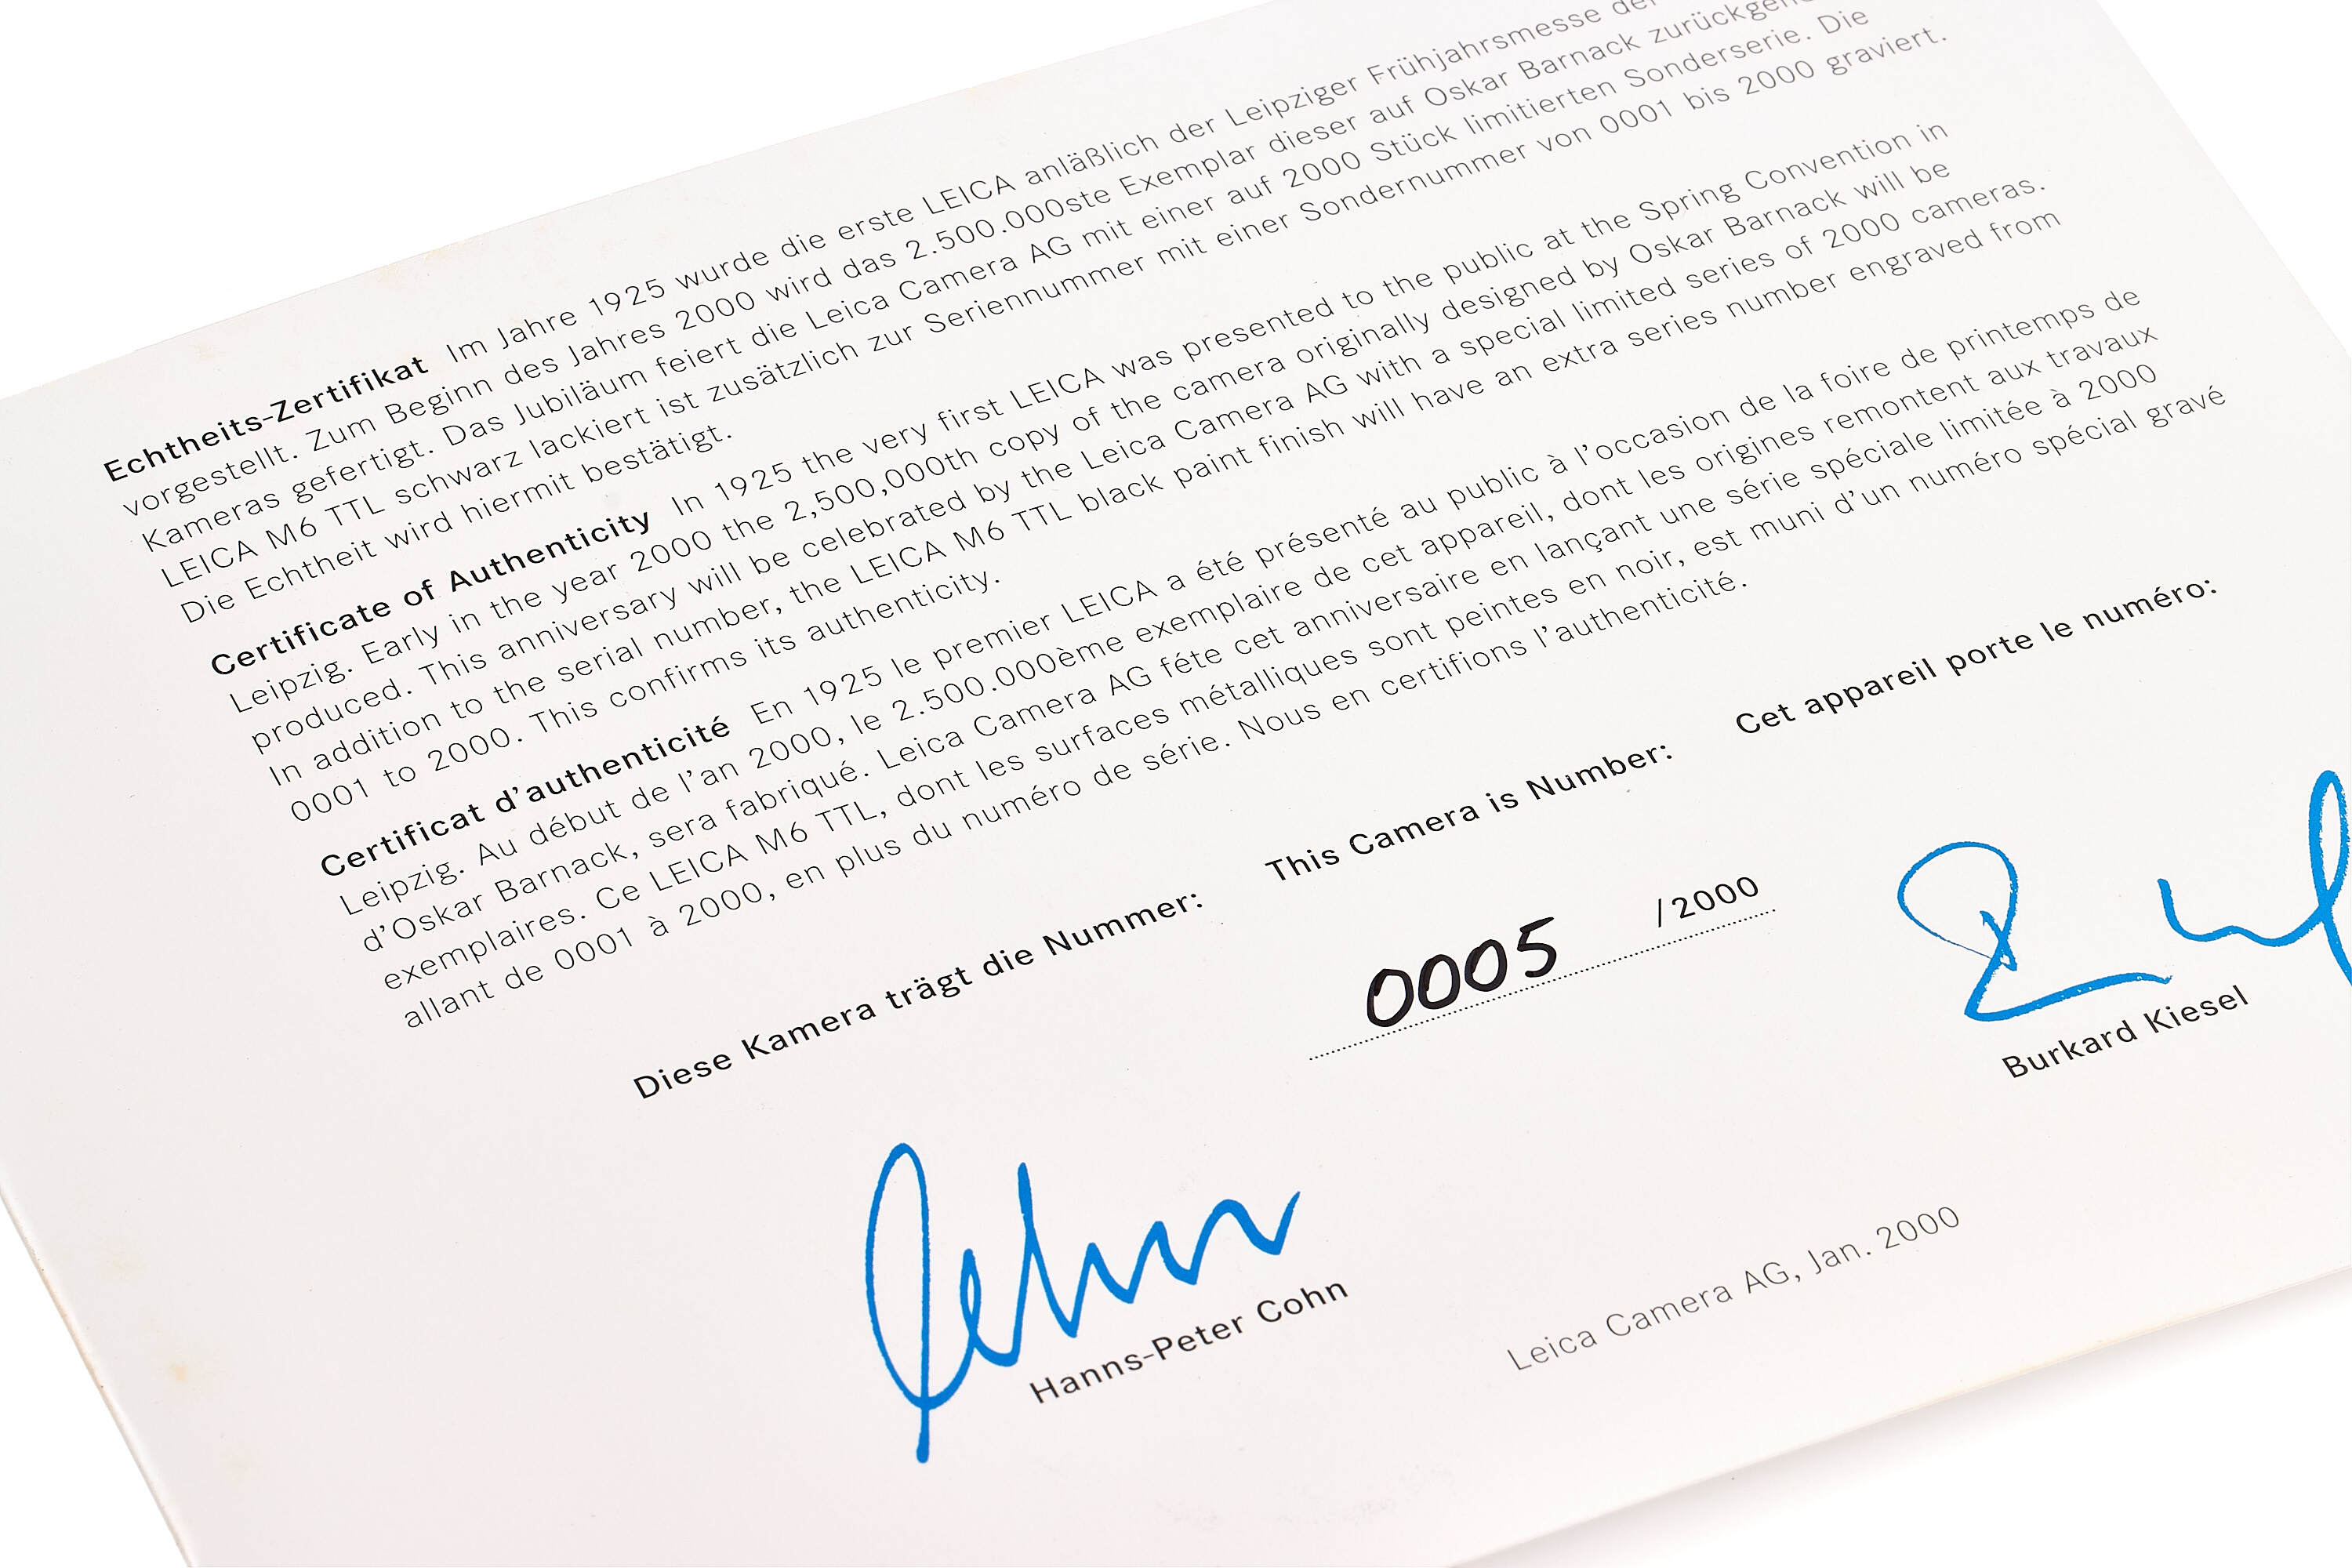 Echtheits-Zertifikat Im Jahre 1925 wurde die erste LEICA anläßlich der Leipziger Frühjahrsmesse der
vorgestellt. Zum Beginn des Jahres 2000 wird das 2.500.000ste Exemplar dieser auf Oskar Barnack
Kameras gefertigt. Das Jubiläum feiert die Leica Camera AG mit einer auf 2000 Stück limitierten Sonderserie. Die
LEICA M6 TTL schwarz lackiert ist zusätzlich zur Seriennummer mit einer Sondernummer von 0001 bis 2000 graviert.
Die Echtheit wird hiermit bestätigt.
Certificate of Authenticity In 1925 the very first LEICA was presented to the public at the Spring Convention in
Leipzig. Early in the year 2000 the 2,500,000th copy of the camera originally designed by Oskar Barnack will be
produced. This anniversary will be celebrated by the Leica Camera AG with a special limited series of 2000 cameras.
In addition to the serial number, the LEICA M6 TTL black paint finish will have an extra series number engraved from
0001 to 2000. This confirms its authenticity.
Certificat d'authenticité En 1925 le premier LEICA a été présenté au public à l'occasion de la foire de printemps de
Leipzig. Au début de l'an 2000, le 2.500.000ème exemplaire de cet appareil, dont les origines remontent aux travaux
d'Oskar Barnack, sera fabriqué. Leica Camera AG féte cet anniversaire en lançant une série spéciale limitée à 2000
exemplaires. Ce LEICA M6 TTL, dont les surfaces métalliques sont peintes en noir, est muni d'un numéro spécial gravé
allant de 0001 à 2000, en plus du numéro de série. Nous en certifions l'authenticité.
Diese Kamera trägt die Nummer: This Camera is Number: Cet appareil porte le numéro:
0005 /2000
Burkard Kiesel
Cohn
Hanns-Peter Cohn
Leica Camera AG, Jan. 2000